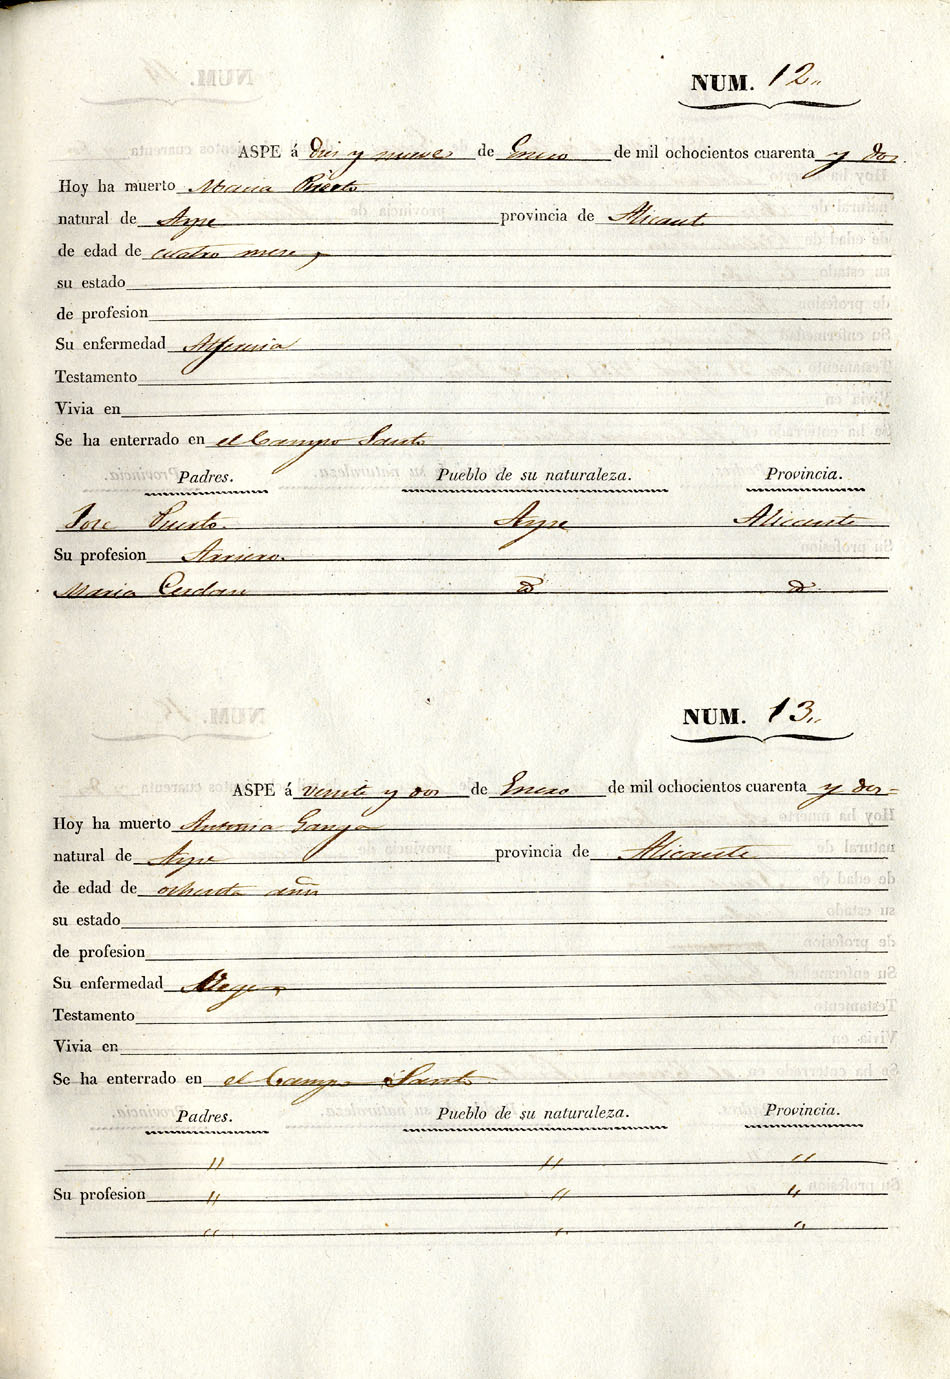 NUM. 12„
ASPE á diez y nueve de Enero de mil ochocientos cuarenta y dos.
Hoy ha muerto Maria Puerto
natural de Aspe provincia de Alicante
de edad de cuatro meses
su estado
de profesion
Su enfermedad Alferecia
Testamento
Vivia en
Se ha enterrado en el Campo Santo
Padres. Pueblo de su naturaleza. Provincia.
Jose Puerto. Aspe Alicante
Su profesion Arriero.
Maria Cerdan d d
NUM. 13„
ASPE á veinte y dos de Enero de mil ochocientos cuarenta y dos=
Hoy ha muerto Antonia
natural de Aspe provincia de Alicante
de edad de ochenta años
su estado
de profesion
Su enfermedad
Testamento
Vivia en
Se ha enterrado en el Campo Santo
Padres. Pueblo de su naturaleza. Provincia.
„ „ „
Su profesion „ „ „
„ „ „